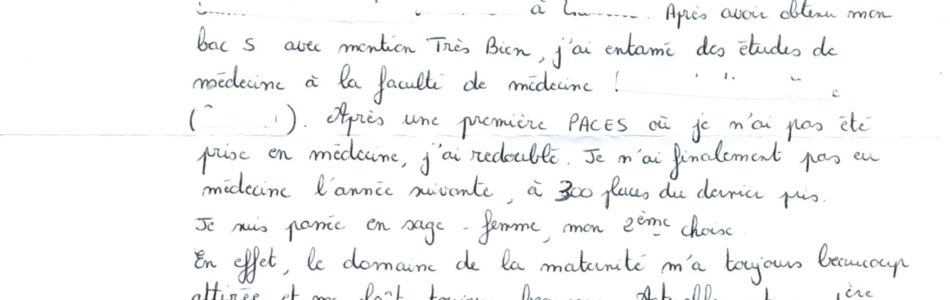 à . Après avoir obtenu mon
bac S avec mention Très Bien, j'ai entamé des études de
médecine à la faculté de médecine
( ). Après une première PACES où je n'ai pas été
prise en médecine, j'ai redoublé. Je n'ai finalement pas eu
médecine l'année suivante, à 300 places du dernier pris.
Je suis passée en sage-femme, mon 2ème choix.
En effet, le domaine de la maternité m'a toujours beaucoup
attirée et me plaît toujours